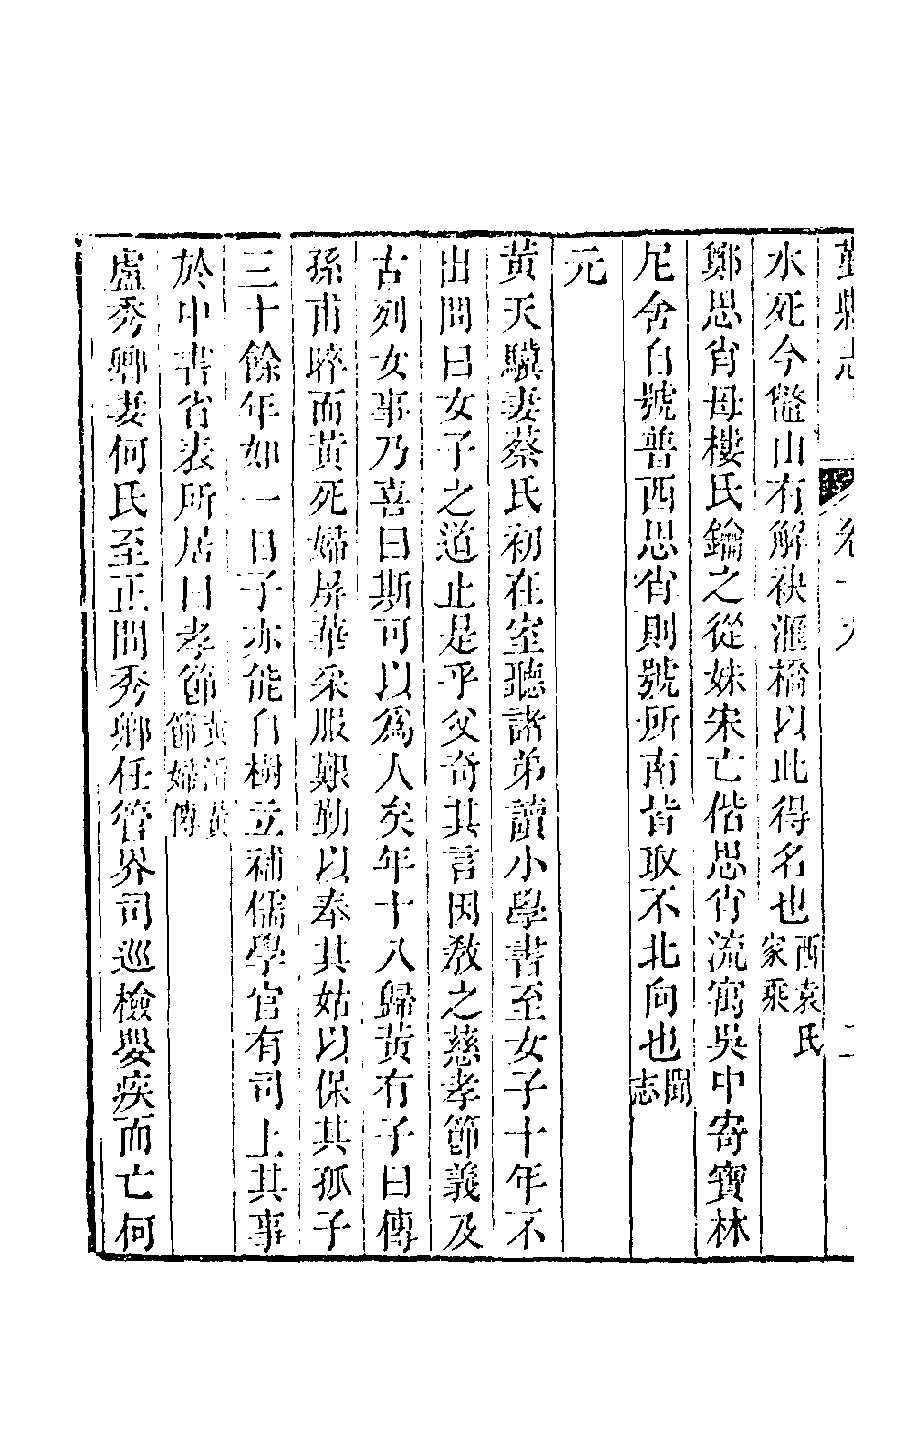 鄞縣志 卷十九
水死今鼈山有解袂滙橋以此得名也西袁氏家乘
鄭思肖母樓氏鑰之從妹宋亡偕思肖流寓吳中寄寶林
尼舍自號普西思肖則號所南皆取不北向也聞志
元
黃天驥妻蔡氏初在室聽諸弟讀小學書至女子十年不
出閫曰女子之道止是乎父奇其言因敎之慈孝節義及
古列女事乃喜曰斯可以爲人矣年十八歸黃有子曰傳
孫甫晬而黃死婦屏華采服艱勤以奉其姑以保其孤子
三十餘年如一日子亦能自樹立補儒學官有司上其事
於中書省表所居曰孝節黃溍黃節婦傳
盧秀卿妻何氏至正間秀卿任管界司巡檢嬰疾而亡何